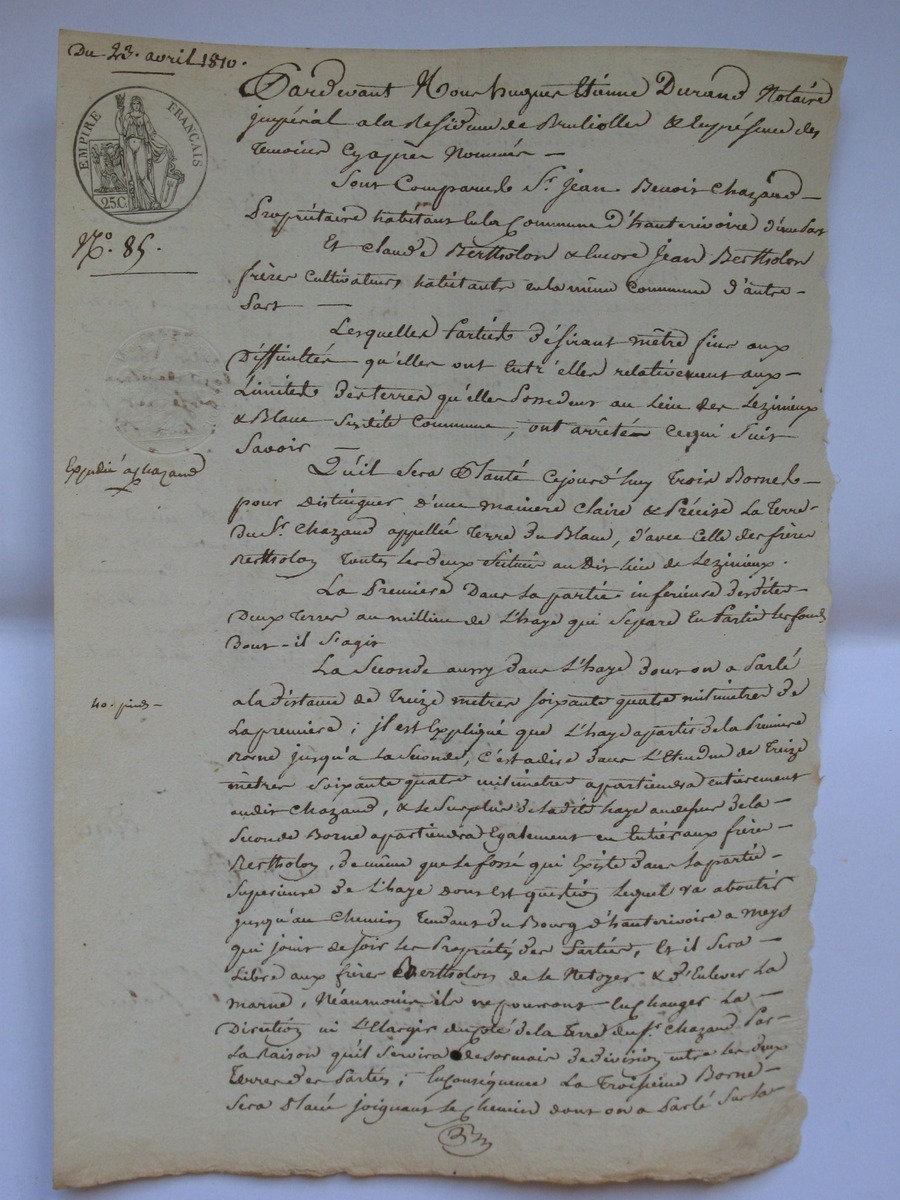 Du 23. avril 1810.
EMPIRE FRANÇAIS
25C
N.o 85.
Pardevant Nous hugues Etienne Durand Notaire
jmpérial a la Residence de Brullioller & En présence des
Temoins Cy après Nommés —
Sont Comparus Sr. Jean Benoit Chazaud —
Propriétaire habitant En la Commune d'hauterivoire d'une Part
Et Claude Bertholon & Encore Jean Bertholon
frères Cultivateurs habitants en la même Commune d'autre —
Part —
Lesquelles Parties Désirant mètre fin aux
Difficultés qu'elles ont Entr'elles relativement aux —
Limites des terres qu'elles Possedent au Lieu des Lezinieux
& Blanc Susdite Commune, ont arrêtés Ce qui Suit
Savoir
Expédié a Chazaud
Qu'il Sera Planté Cejourd'huy Trois Bornes —
pour distinguer d'une maniere Claire & Précise La Terre —
du Sr. Chazaud appellée Terre du Blanc, d'avec Celle des frères
Bertholon Toutes Les deux Situées au Dit Lieu de Lezinieux.
La Première Dans La partie inferieure desdites
Deux Terres au millieu de L'haye qui Sépare En Partie Les fonds
Dont il S'agit
La Seconde aussy dans L'haye dont on a Parlé
a la distance de Treize metres soixante quatre milimetres de
40. pieds —
La première ; jl est Expliqué que L'haye a partir de la Première
Borne jusqu'à La Seconde, C'est adire dans L'Etendue de Treize
mètres Soixante quatre milimetre appartiendra entierement
audit Chazaud, & Le Surplus de ladite haye au desus de la —
Seconde Borne apartiendra Egalement en Entier aux frère —
Bertholon, de même que Le fossé qui Existe dans La partie —
Superieure de L'haye dont Est question Lequel va aboutir
jusqu'au Chemin Tendant du Bourg d'hauterivoire a Meys
qui joint de soir Les Propriétés des Parties, Et il Sera —
Libre aux frères Bertholon de le Netoyer & D'Enlever La
marne, Néaumoins ils ne pourront En Changer La —
Direction ni L'Elargir du Coté de la Terre du Sr. Chazaud Par —
La Raison qu'il Servira desormais de division entre les deux
Terres des Parties ; En Conséquence La Troisième Borne —
Sera Placée joignant Le Chemin dont on a Parlé Sur la